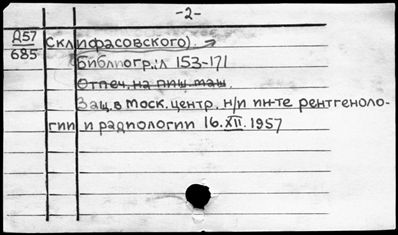 -2-
Д57
685
Склифасовского). →
библиогр.: л 153-171
Отпеч. на пиш. маш.
Защ. в Моск. центр. н/и ин-те рентгеноло-
гии и радиологии 16.XII.1957